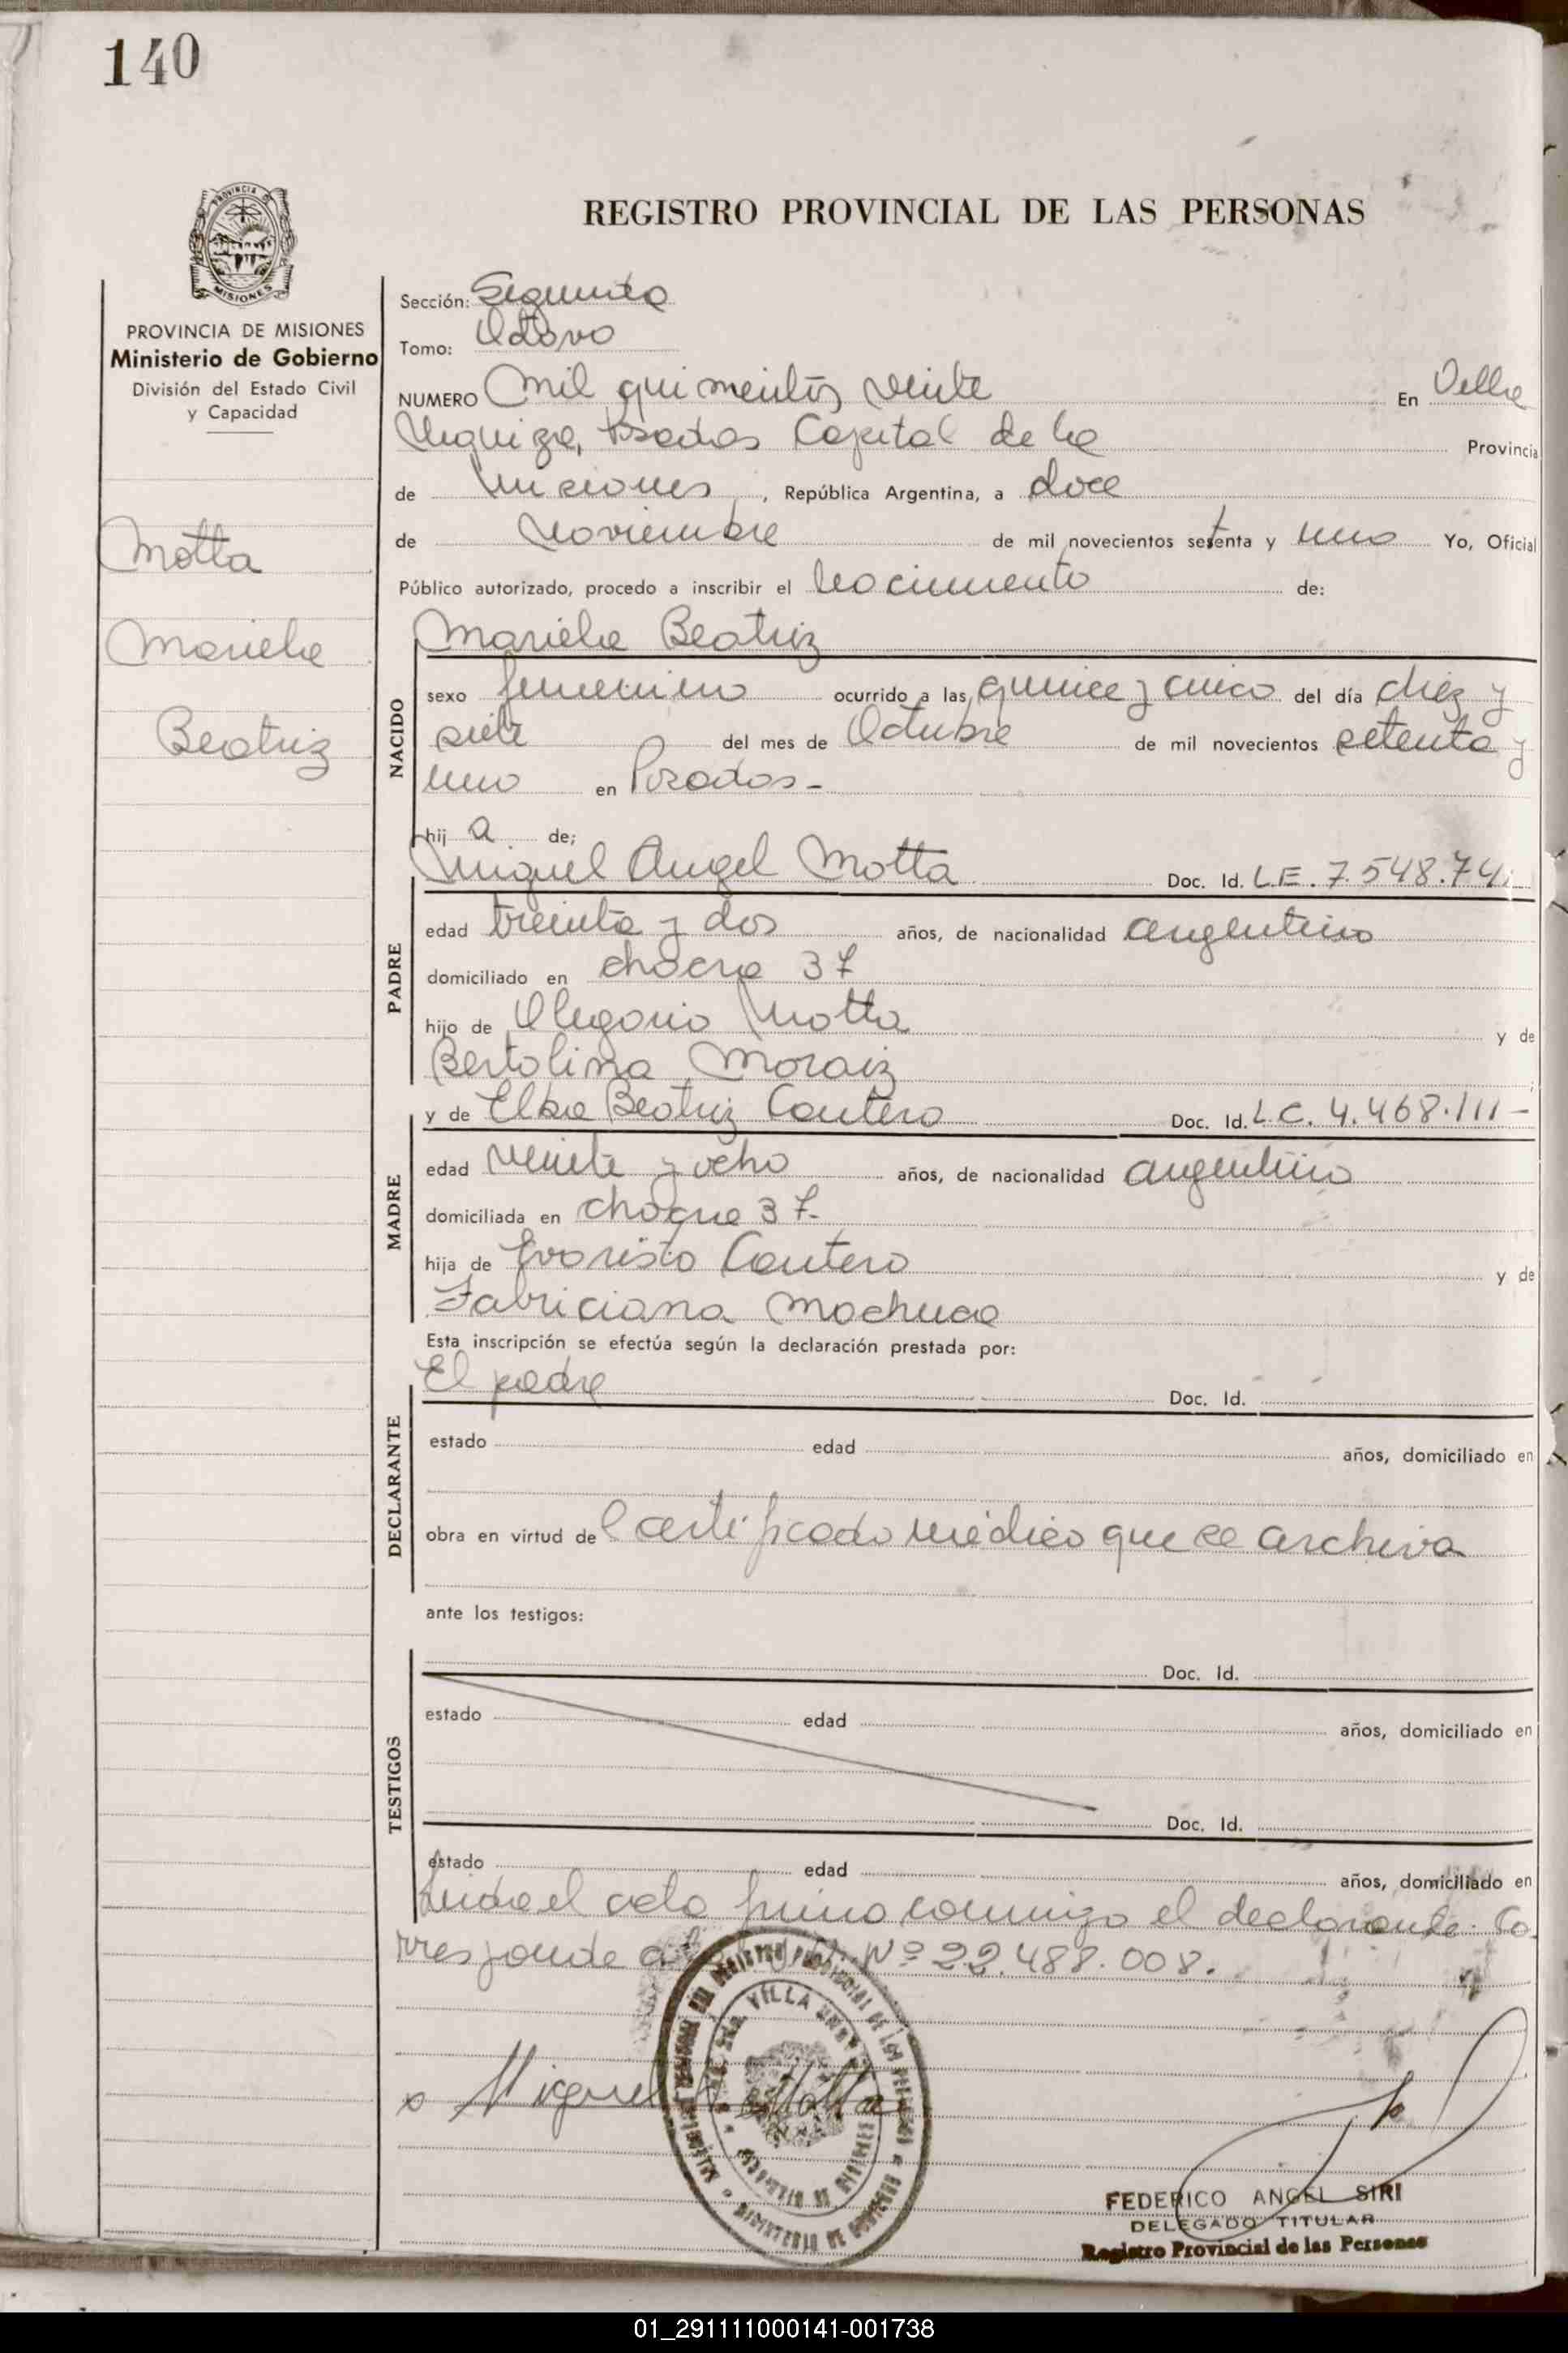 140
PROVINCIA DE MISIONES
REGISTRO PROVINCIAL DE LAS PERSONAS
PROVINCIA DE MISIONES
Ministerio de Gobierno
División del Estado Civil
y Capacidad
Motta
Mariela
Beatriz
Sección: Segunda
Tomo: Octavo
NUMERO Mil quinientos veinte En Villa
Urquiza, Posadas Capital de la Provincia
de Misiones, República Argentina, a doce
de Noviembre de mil novecientos setenta y uno Yo, Oficial
Público autorizado, procedo a inscribir el Nacimiento de:
Mariela Beatriz
NACIDO
sexo femenino ocurrido a las quince y cinco del día diez y
siete del mes de Octubre de mil novecientos setenta y
uno en Posadas-
hij a de;
Miguel Angel Motta Doc. Id. L.E. 7.548.74
PADRE
edad treinta y dos años, de nacionalidad argentino
domiciliado en chacra 37
hijo de Olegario Motta y de
Bertolina Moraiz
y de Elba Beatriz Cantero Doc. Id. L.C. 4.468.111-
MADRE
edad veinte y ocho años, de nacionalidad argentina
domiciliada en chacra 37-
hija de Evaristo Cantero y de
Fabriciana Machuca
Esta inscripción se efectúa según la declaración prestada por:
El padre Doc. Id.
DECLARANTE
estado edad años, domiciliado en
obra en virtud del certificado médico que se archiva
ante los testigos:
Doc. Id.
TESTIGOS
estado edad años, domiciliado en
Doc. Id.
estado edad años, domiciliado en
Leida el acta firma conmigo el declarante. Co
rresponde a Nº 22.488.008.
VILLA
Miguel Motta
FEDERICO ANGEL SIRI
DELEGADO TITULAR
Registro Provincial de las Personas
01_291111000141-001738